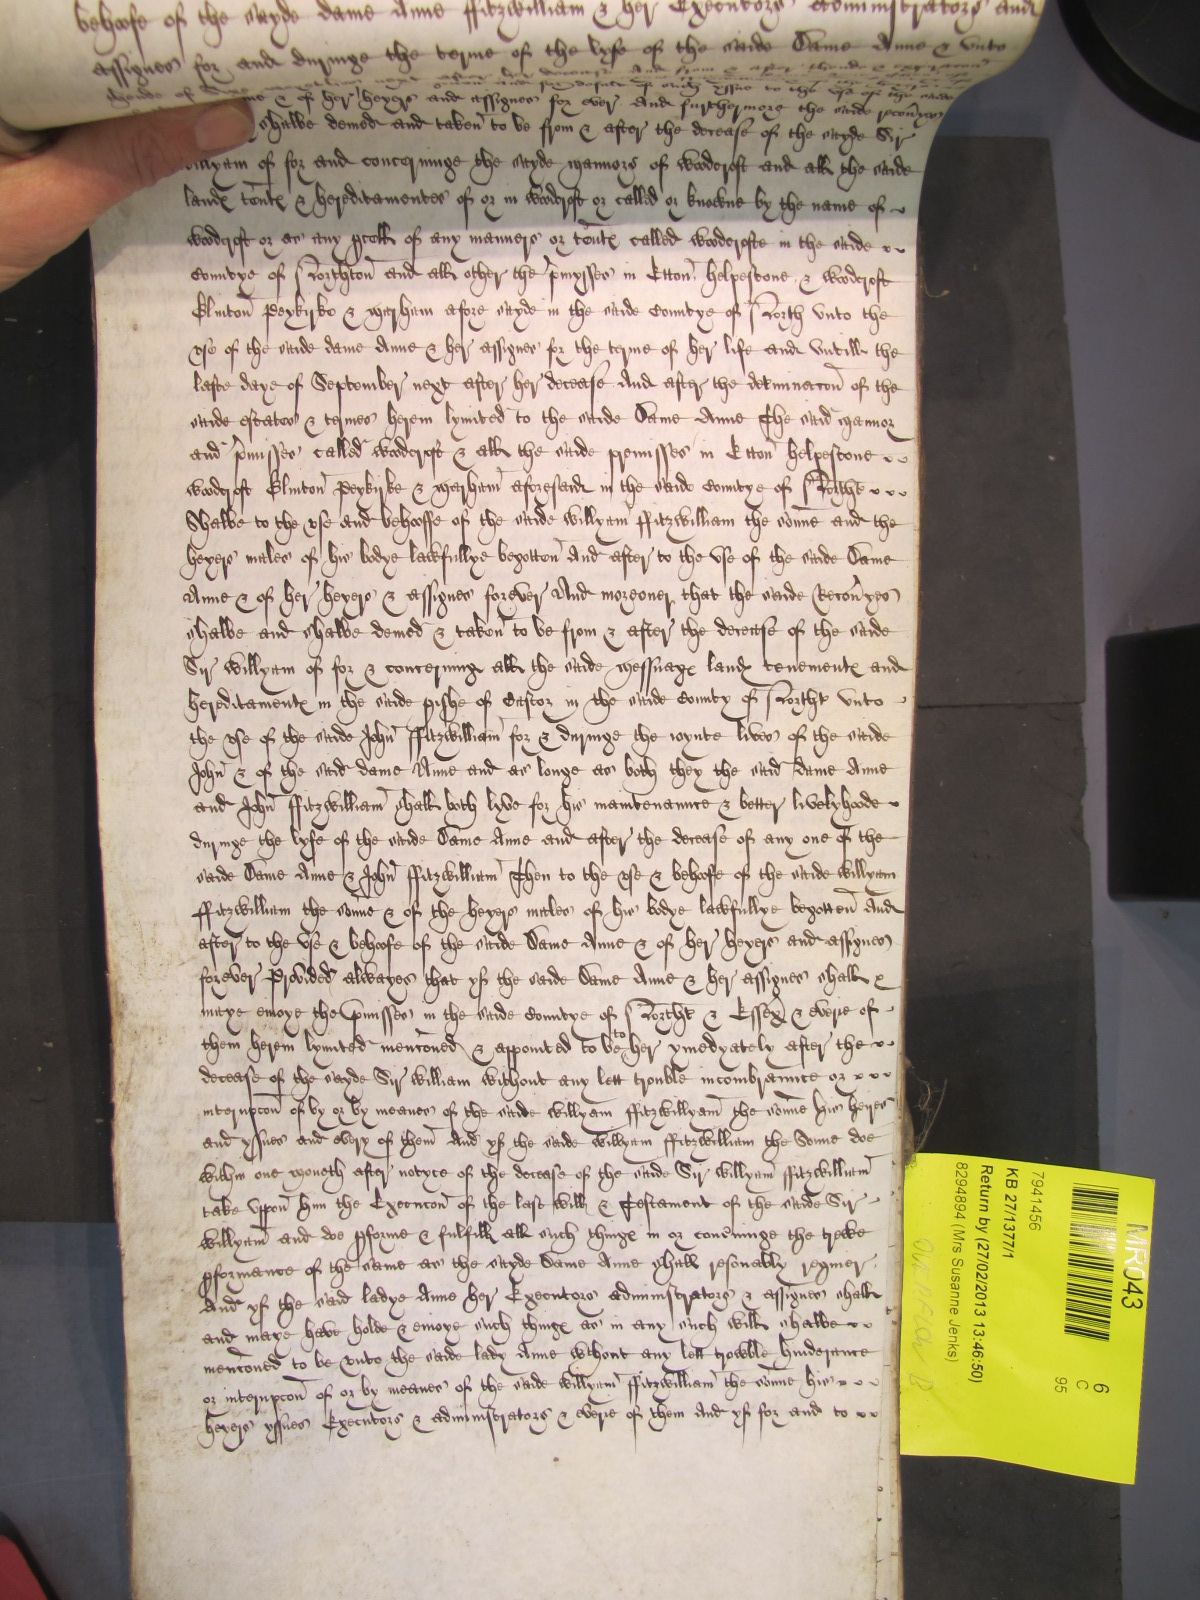 behoofe of the sayde dame Anne ffitzwilliam & her Executors Administrators and
assignes for and duringe the terme of the lyfe of the saide Dame Anne & unto
& of her heyers and assignes for ever And furthermore the saide recovyes
shalbe demed and taken to be from & after the decease of the sayde Sir
Willyam of for and concerninge the sayde mannors of woodcroft and all the saide
landes tentes & hereditamentes of or in woodcroft or called or knowne by the name of
woodcroft or as any pcell of any manners or tentes called woodcrofte in the saide
Countye of Northton and all other the pmysses in Etton helpestone & woodcroft
Glinton Peykirke & Marham afore sayde in the saide Countye of North unto the
use of the saide dame Anne & her assignes for the terme of her life and untill the
laste daye of September next after her decease And after the determinacon of the
saide estates & termes herein lymited to the saide Dame Anne The said mannor
and pmisses called woodcroft & all the saide premisses in Etton helpestone
woodcroft Glinton Peykirke & Marham aforesaid in the saide Countye of Northt
Shalbe to the use and behooffe of the saide willyam ffitzwilliam the sonne and the
heyers males of his bodye lawfullye begotton And after to the use of the saide Dame
Anne & of her heyers & assignes forever And moreover that the saide Recoveryes
shalbe and shalbe demed & taken to be from & after the decease of the saide
Sir Willyam of for & concerning all the saide messuages landes tenementes and
hereditamentes in the saide pishe of Castor in the saide County of Northt unto
the use of the saide John ffitzwilliam for & duringe the joynte lives of the saide
John & of the said dame Anne and as longe as both they the said Dame Anne
and John ffitzwilliam shall both lyve for his maintenannce & better livelyhoode
duringe the lyfe of the saide Dame Anne and after the decease of any one of the
saide Dame Anne & John ffitzwilliam Then to the use & behoofe of the saide willyam
ffitzwilliam the sonne & of the heyers males of his bodye lawfullye begotten And
after to the use & behoofe of the saide Dame Anne & of her heyers and assignes
forever Provided alwayes that yf the saide Dame Anne & her assignes shall
maye enioye the pmisses in the saide Countye of Northt & Essex & every of
them herein lymited mencioned & appointed to be to her ymedyately after the
decease of the sayde Sir William without any lett trouble incombrannce or
interupcon of by or by meanes of the saide willyam ffitzwillyam the sonne his heyres
and yssues and every of them And yf the saide willyam ffitzwilliam the Sonne doe
within one moneth after notyce of the decease of the saide Sir Willyam ffitzwilliam
take uppon him the Execucon of the last will & Testament of the saide Sir
Willyam and doe pforme & fulfill all such thinges in or concerninge the trewe
pformance of the same as the sayde Dame Anne shall resonably require
And yf the said ladye Anne her Executors administrators & assignes shall
and maye have holde & enioye such thinges as in any such will shalbe
menconed to be unto the saide lady Anne wthout any lett trowble hinderance
or interupcon of or by meanes of the saide willyam ffitzwilliam the sonne his
heyers yssues Executors & administrators & every of them And yf for and to
MR043
6
C
95
7941456
KB 27/1377/1
Return by (27/02/2013 13:46:50)
8294894 (Mrs Susanne Jenks)